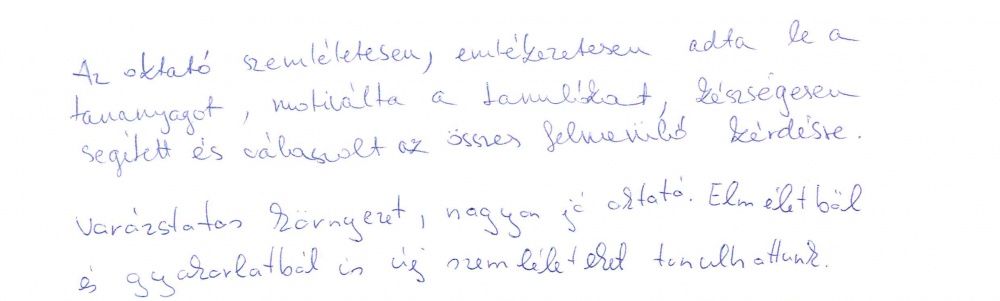 Az oktató szemléletesen, emlékezetesen adta le a
tananyagot, motiválta a tanulókat, készségesen
segített és válaszolt az összes felmerülő kérdésre.
Varázslatos környezet, nagyon jó oktató. Elméletből
és gyakorlatból is új szemléleteket tanulhattunk.